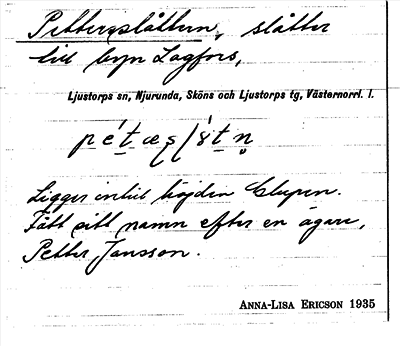 Pettersslåttern, slåtter
till byn Lagfors,
Ljustorps sn, Njurunda, Sköns och Ljustorps tg, Västernorrl. l.
Ligger intill höjden Clupen.
Fått sitt namn efter en ägare,
Petter Jansson.
ANNA-LISA ERICSON 1935